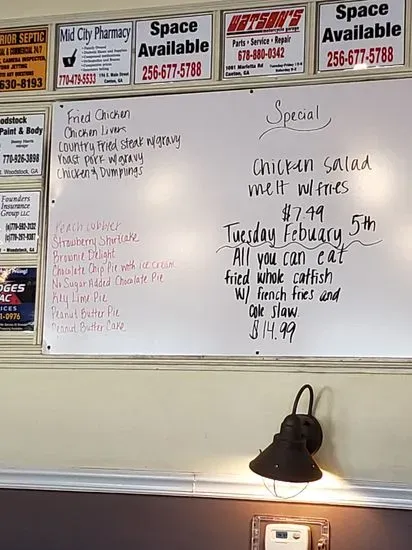 RIOR SEPTIC
630-8193
Mid City Pharmacy
770-479-5533
Canton, GA
Space
Available
256-677-5788
WATSON'S
Parts • Service • Repair
678-880-0342
Canton, GA
Space
Available
256-677-5788
Paint & Body
770-926-3898
Woodstock, GA
Founders
Insurance
Group LLC
Fried Chicken
Chicken Livers
Country Fried Steak w/gravy
Roast Pork w/gravy
Chicken & Dumplings
Peach Cobbler
Strawberry Shortcake
Brownie Delight
Chocolate Chip Pie with ice cream
No Sugar Added Chocolate Pie
Key Lime Pie
Peanut Butter Pie
Peanut Butter Cake
Special
Chicken salad
melt w/ fries
$7.49
Tuesday Febuary 5th
All you can eat
fried whole catfish
w/ french fries and
Cole slaw.
$14.99